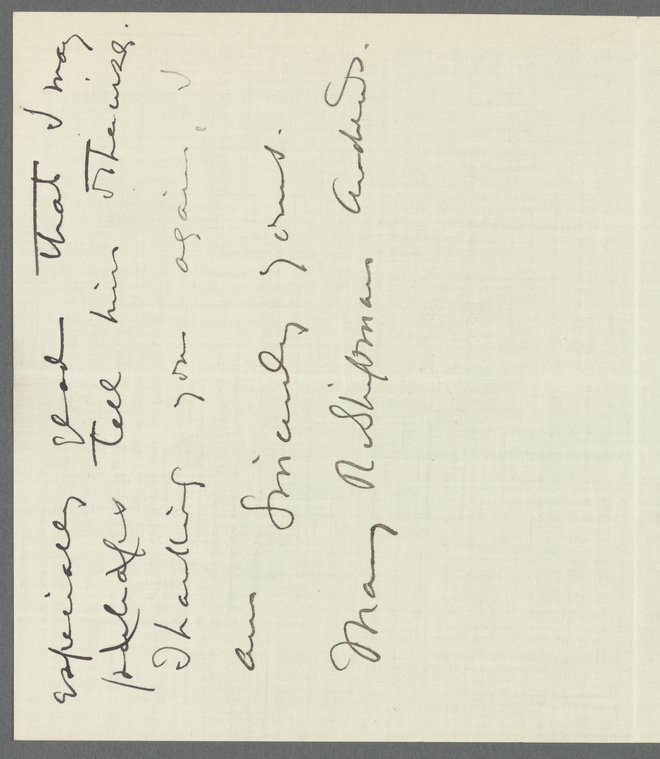 especially glad that I may
perhaps tell him otherwise.
Thanking you again, I
am
Sincerely yours.
Mary R. Shipman Andrews.